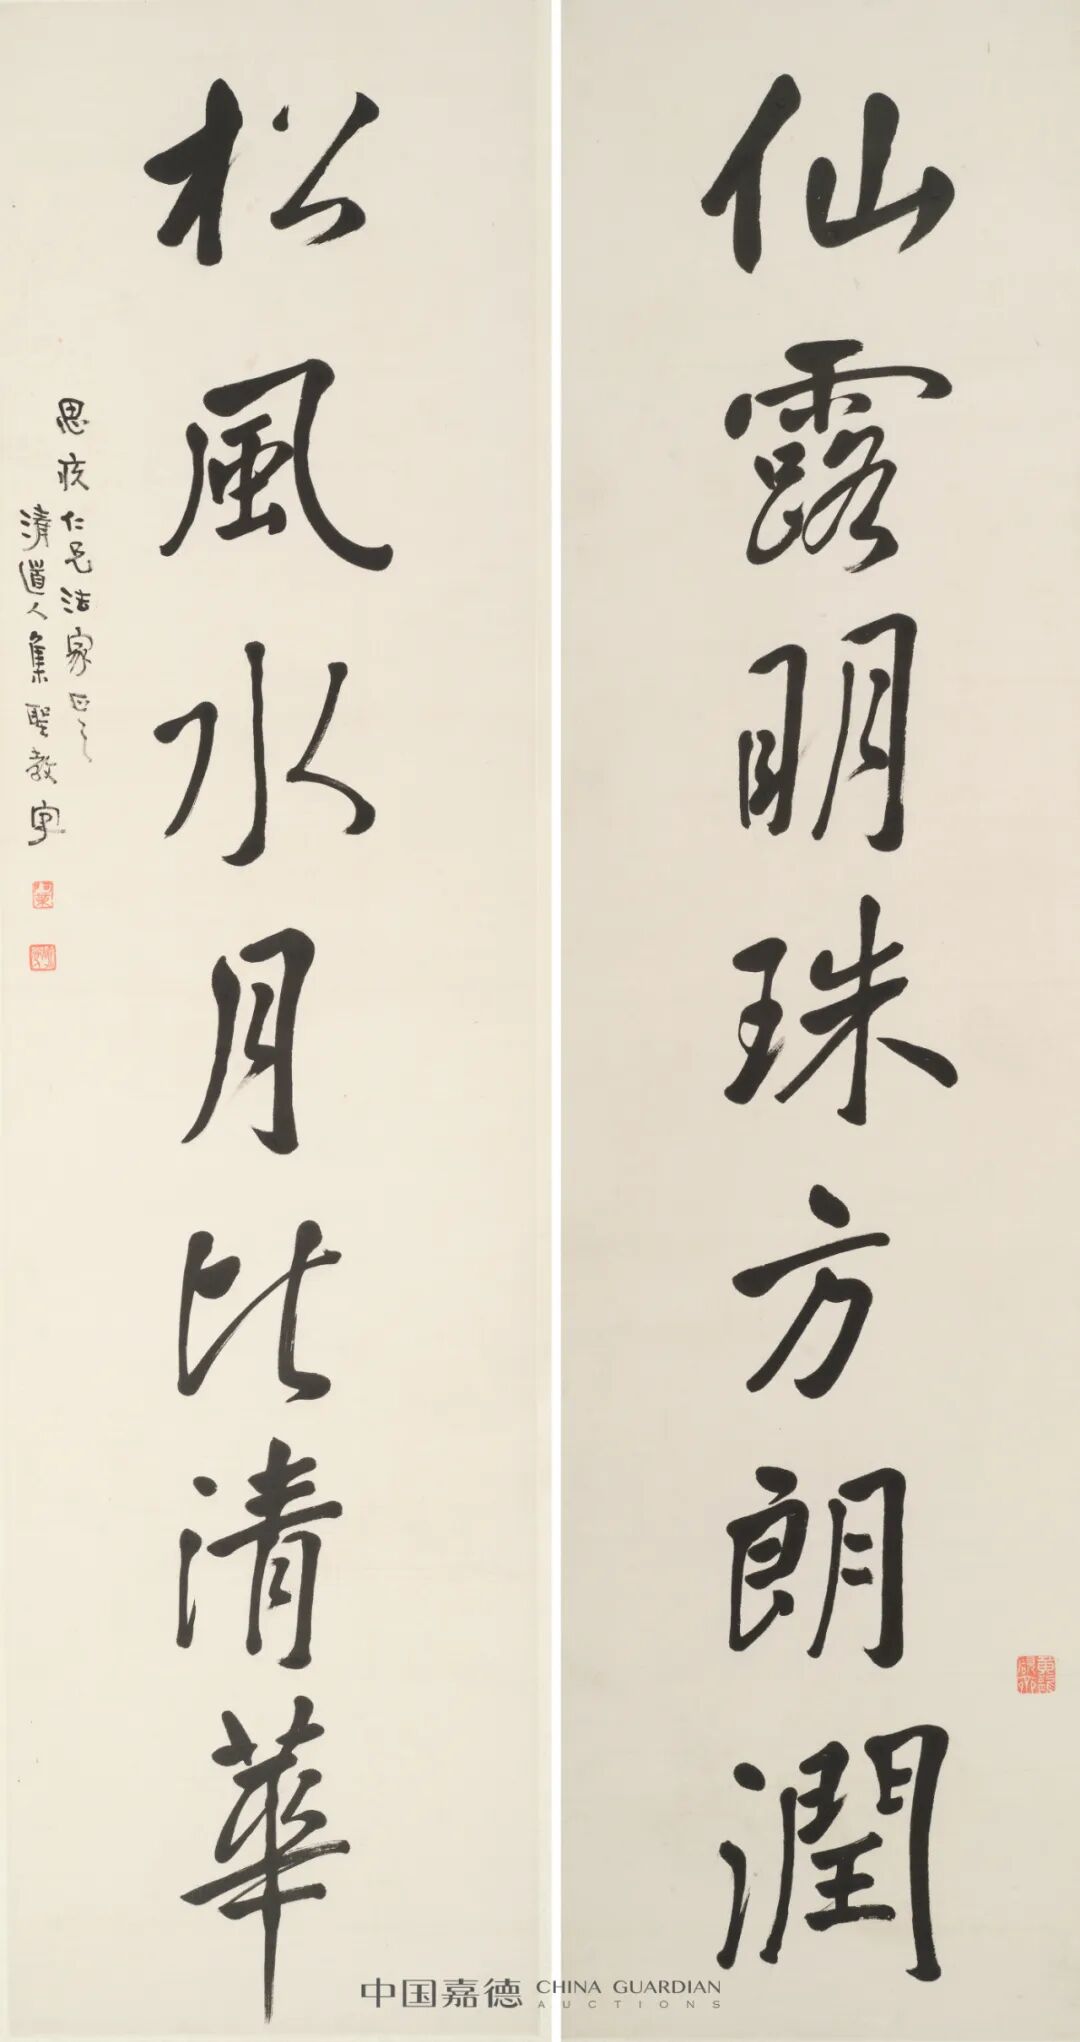 仙露明珠方朗潤
松風水月比清華
思疚仁兄法家正之
清道人集聖教字
中国嘉德 CHINA GUARDIAN
AUCTIONS